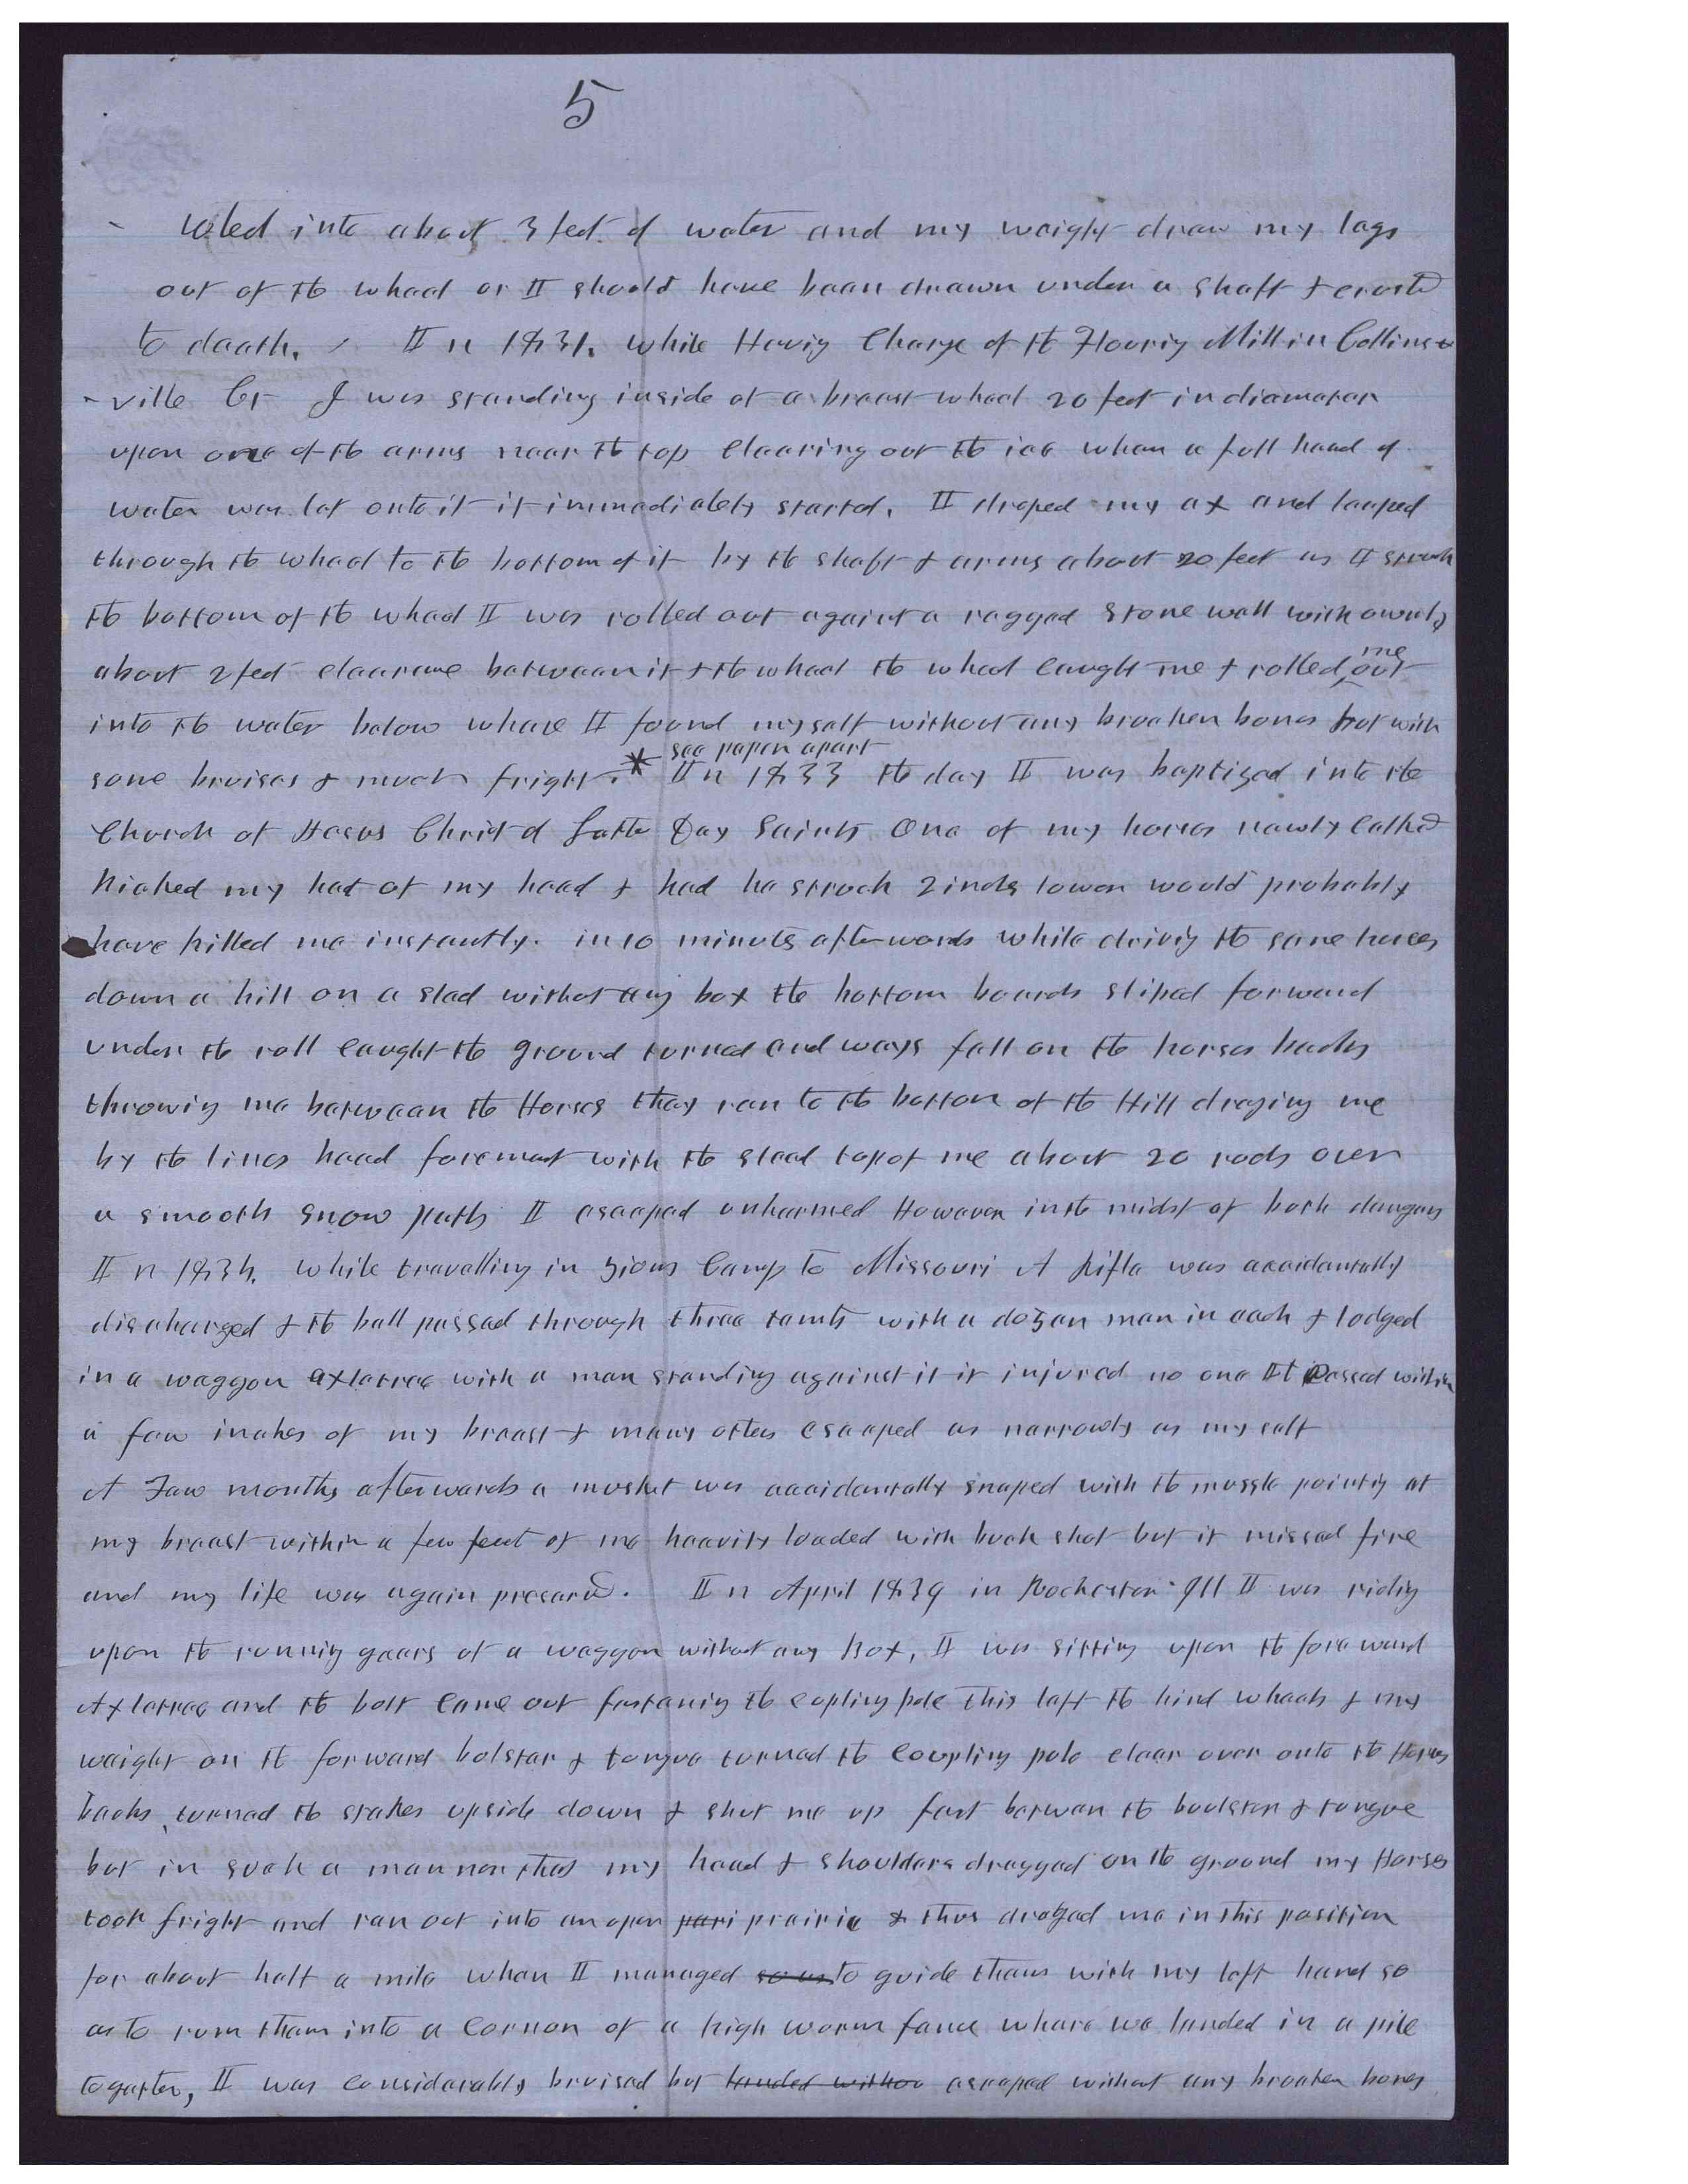 5
roled into about 3 feet of water and my weight drew my legs
out of the wheel or I should have been drawn under a shaft & crushed
to death. In 1831. while Having Charge of the Flouring Mill in Collins-
-ville Ct I was standing inside of a breast wheel 20 feet in diameter
upon one of the arms near the top clearing out the ice when a full head of
water was let onto it it immediately started, I droped my ax and leaped
through the wheel to the bottom of it by the shaft & arms about 20 feet as I struck
the bottom of the wheel I was rolled out against a ragged stone wall with ownly
about 2 feet clearance between it & the wheel the wheel caught me & rolled me out
into the water below whare I found myself without any broaken bones but with
see paper apart
some bruises & much fright. * In 1833 the day I was baptized into the
Church of Jesus Christ of Latter Day Saints One of my horses newly calked
Kicked my hat of my head & had he struck 2 inches lower would probably
have killed me instantly. in 10 minutes afterwords while driving the same horses
down a hill on a sled without any box the bottom boards sliped forward
under the roll caught the ground turned end ways fell on the horses backs
throwing me between the Horses they ran to the bottom of the Hill draging me
by the lines head foremost with the slead top of me about 20 rods over
a smooth snow path I escaped unharmed However in the midst of both dangers
In 1834. while travelling in Zions Camp to Missouri A Rifle was accidentally
discharged & the ball passed through three tents with a dozen men in each & lodged
in a waggon axletree with a man standing against it it injured no one It passed within
a few inches of my breast & many others escaped as narrowly as my self
A Few months afterwards a musket was accidentally snaped with the mussle pointing at
my breast within a few feet of me heavily loaded with buck shot but it missed fire
and my life was again preserved. In April 1839 in Rochester Ill I was riding
upon the running geers of a waggon without any Box, I was sitting upon the foreward
Axletree and the bolt came out fastening the copling pole this left the hind wheels & my
weight on the forward bolster & tongue turned the Coupling pole clear over onto the Horses
backs, turned the stakes upside down & shut me up fast between the boolster & tongue
but in such a manner that my head & shoulders dragged on the ground my Horses
took fright and ran out into an open pari prairie & thus dragged me in this position
for about half a mile when I managed so as to guide them with my left hand so
as to run them into a Corner of a high worm fence whare we landed in a pile
togather, I was considerably bruised but landed withou escaped without any broaken bones